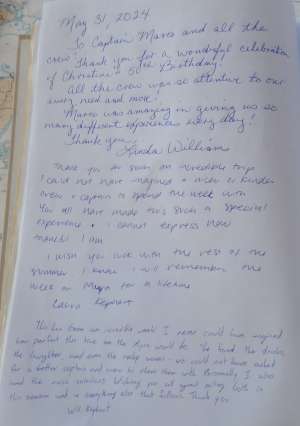 May 31, 2024
To Captain Maros and all the
crew, Thank you for a wonderful celebration
of Christine's 50th Birthday!
All the crew was so attentive to our
every need and more!
Maros was amazing in giving us so
many different experiences every day!
Thank you,
Linda William
Thank you for such an incredible trip
I could not have imagined a nicer or kinder
crew & captain to spend the week with
You all have made this such a special
experience & I cannot express how
thankful I am
I wish you luck with the rest of the
summer I know I will remember the
week on for a lifetime
Laura
This has been an incredible week. I never could have imagined
how perfect this time on the would be. The food, the drinks,
the laughter, and even the rocky waves - we could not have asked
for a better captain and crew to share them with. Personally, I also
had the most Wishing you all great sailing both in
this season and in everything else that follows. Thank you
Will